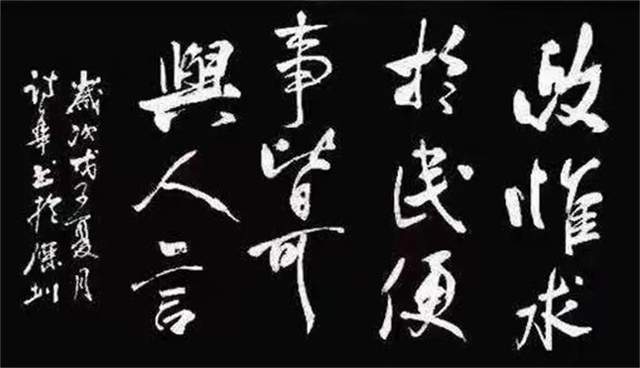 政惟求
於民便
事皆可
與人言
歲次戊子夏月
華書於深圳